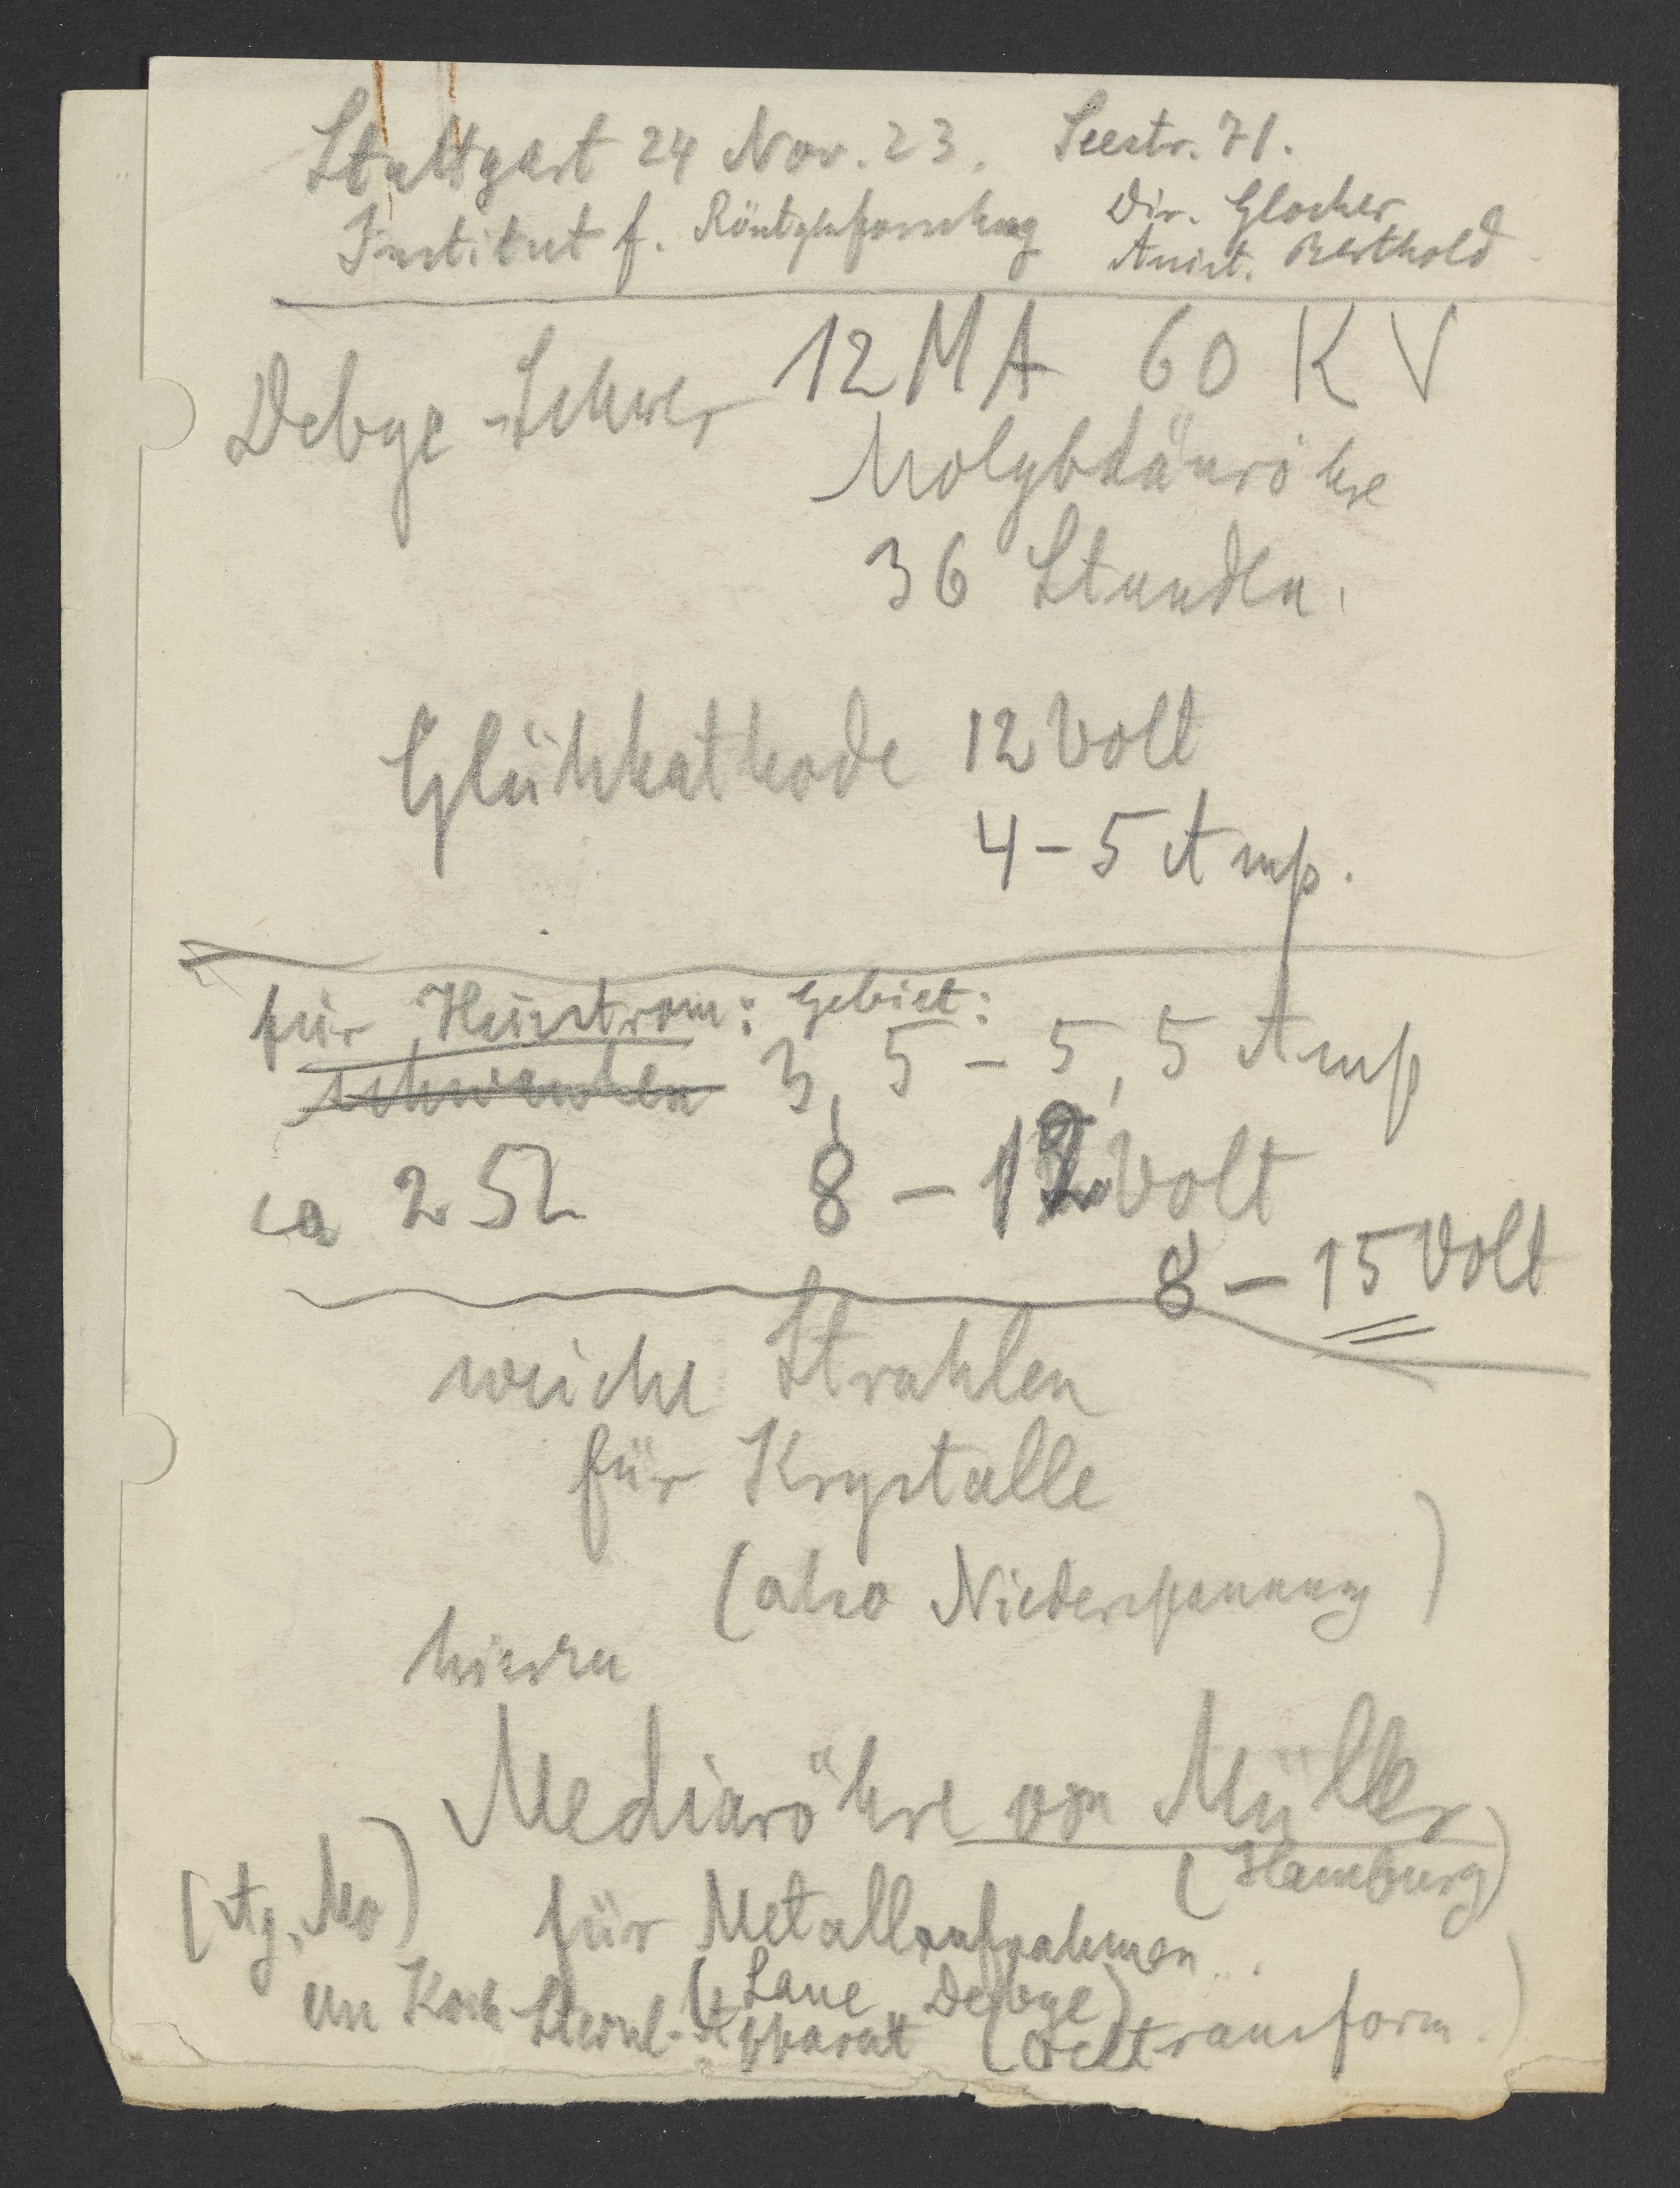 Stuttgart 24 Nov. 23. Seestr. 71.
Institut f. Röntgenforschung Dir. Glocker
Assist. Berthold
12 MA 60 KV
Debye-Scherrer
Molybdänröhre
36 Stunden.
Glühkathode 12 Volt
4-5 Amp.
für Heizstrom: Gebiet:
3,5 - 5,5 Amp
ca 2 Ω 8 - 12 Volt
8 - 15 Volt
weiche Strahlen
für Krystalle
(also Niederspannung)
hierzu
Mediaröhre von Müller
(Hamburg)
(Ag, Mo) für Metallaufnahmen
(Laue Debye)
an Koch Sterzel-Apparat (Oeltransform.)